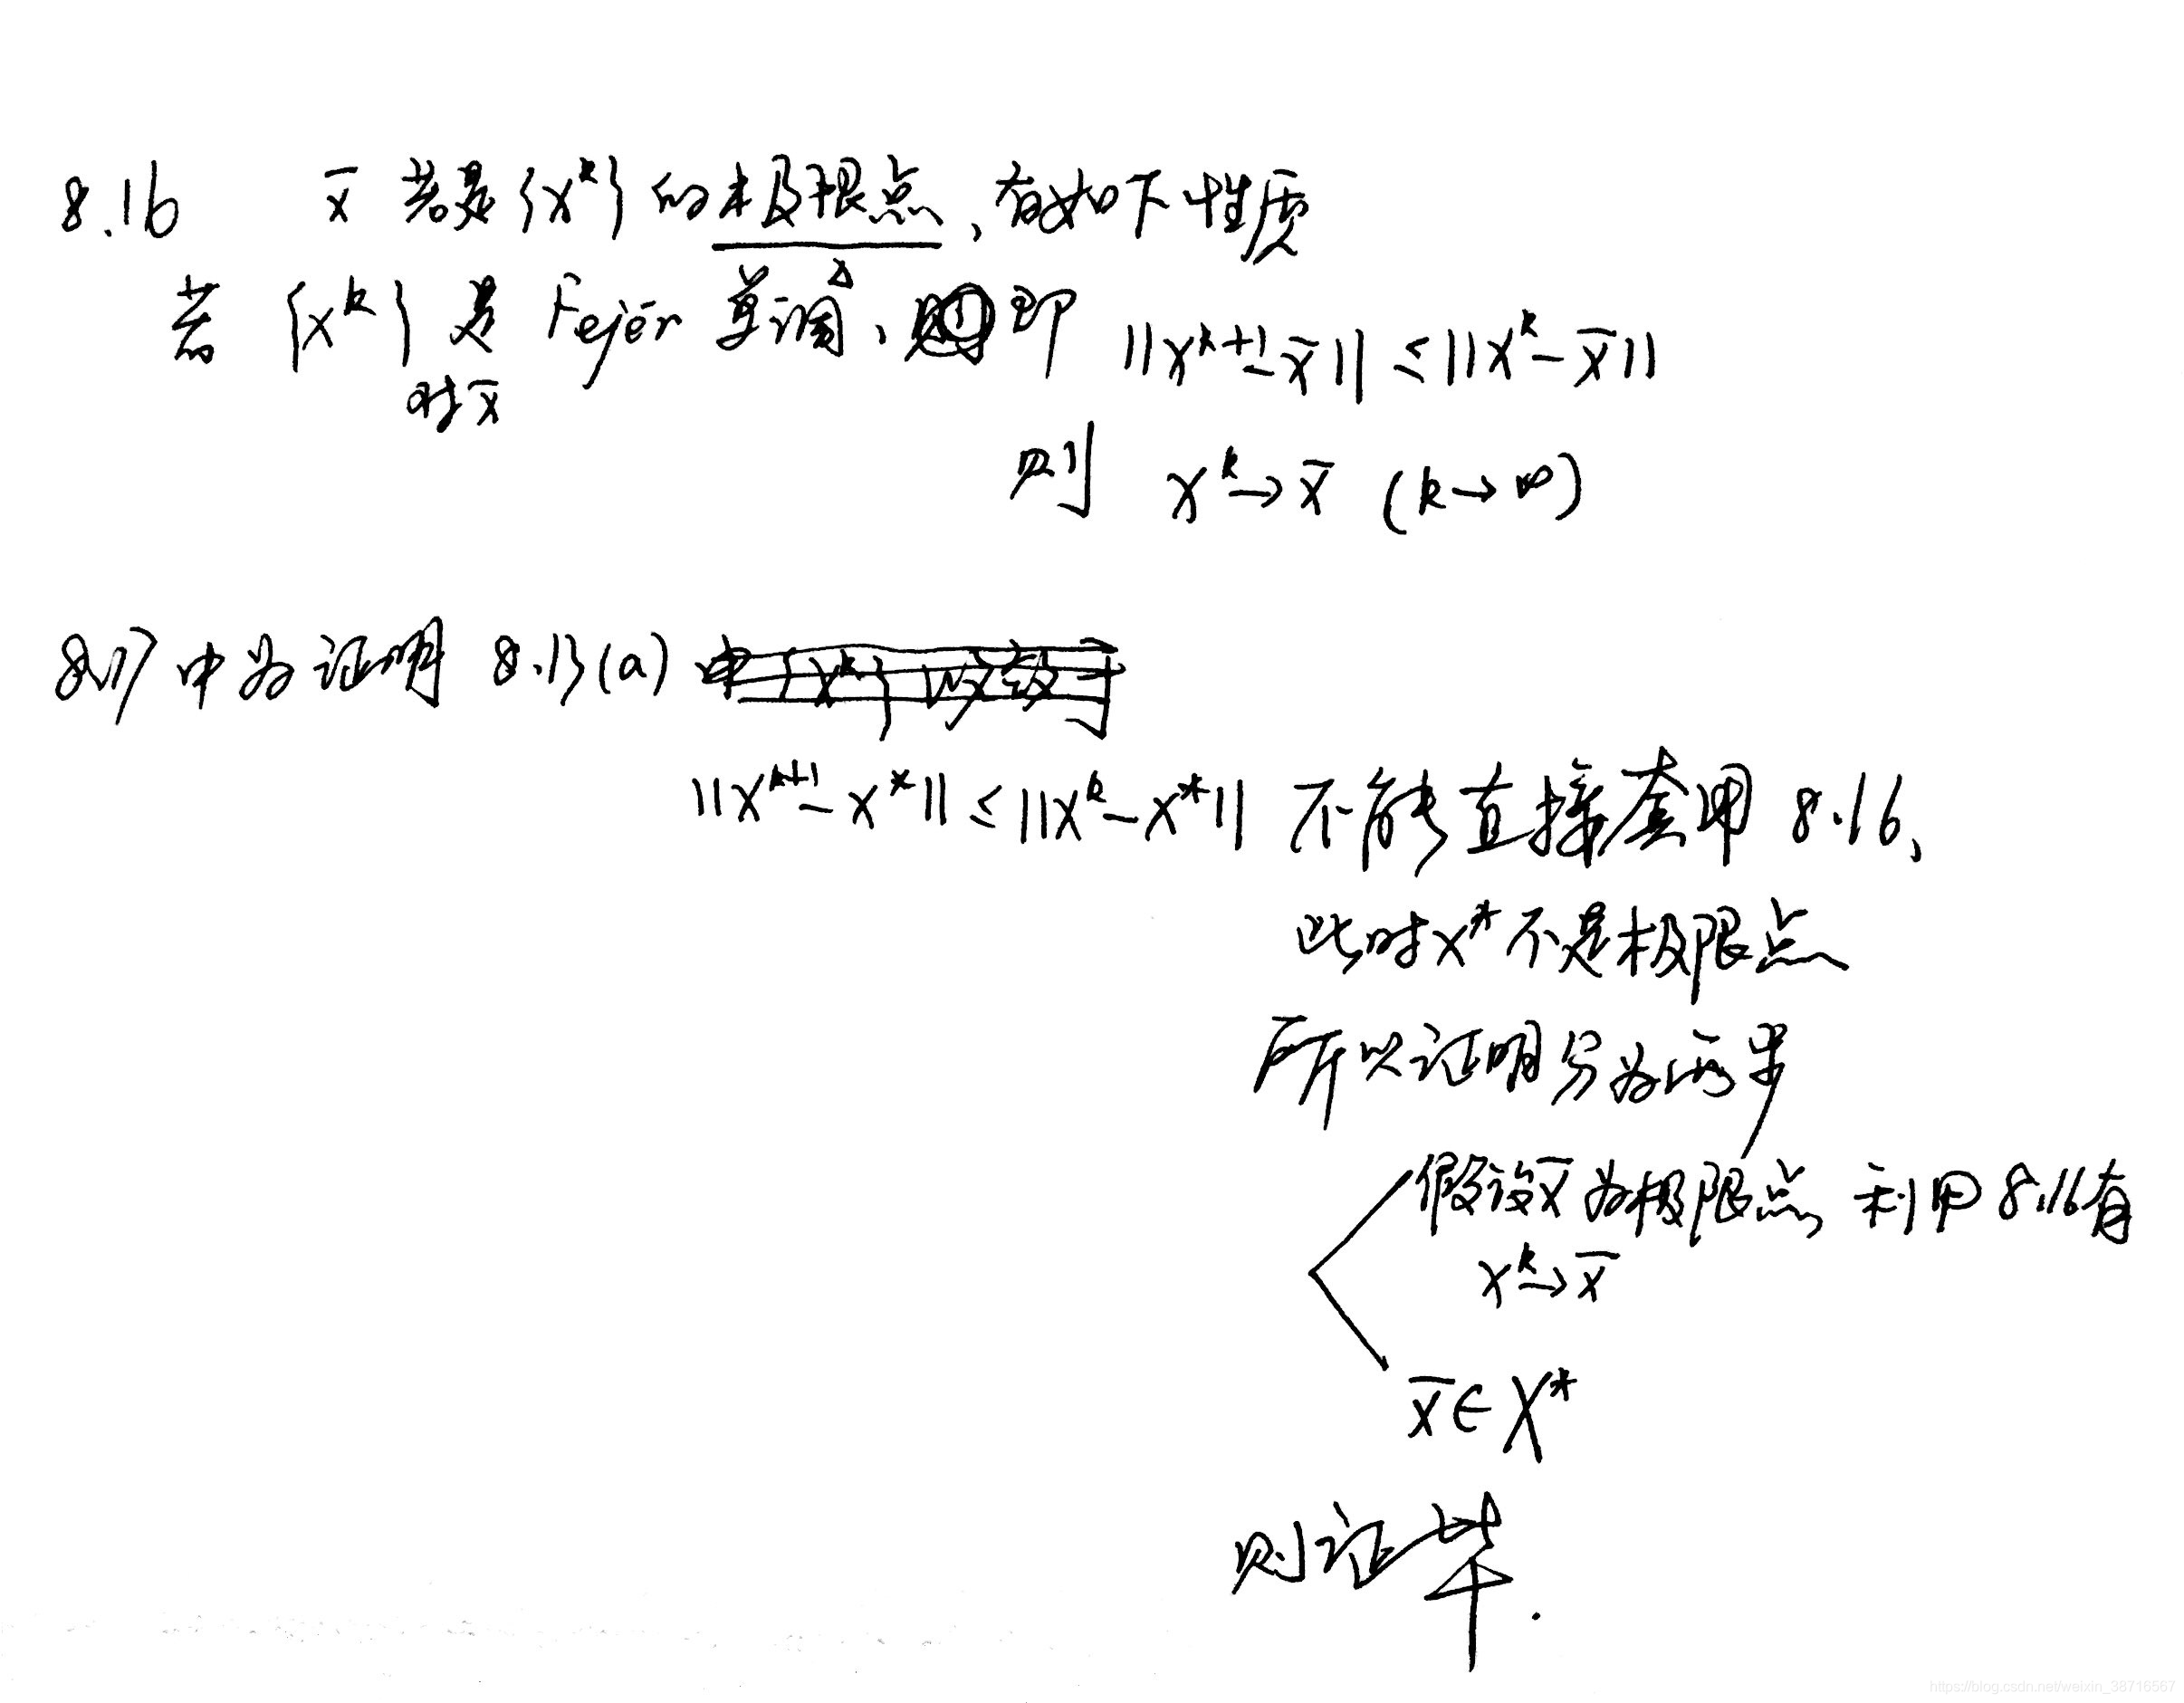 8.16 x̄ 若是{xᵏ}的极限点,有如下性质
若 {xᵏ} 是 Fejér 单调,即 ||xᵏ⁺¹-x̄|| ≤ ||xᵏ-x̄||
对x̄
则 xᵏ→x̄ (k→∞)
8.17 中为证明 8.13(a)
||xᵏ⁺¹-x*|| ≤ ||xᵏ-x*|| 不能直接套用 8.16,
此时x*不是极限点
所以证明分为两步
假设x̄为极限点,利用8.16有
xᵏ→x̄
x̄∈X*
则证毕.
https://blog.csdn.net/weixin_38716567